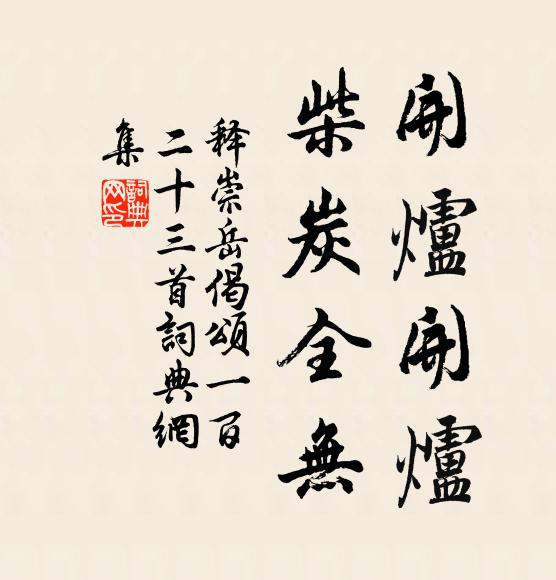 開爐開爐
柴炭全無
释崇岳偈頌一百
二十三首詞典網
集
詞典网印